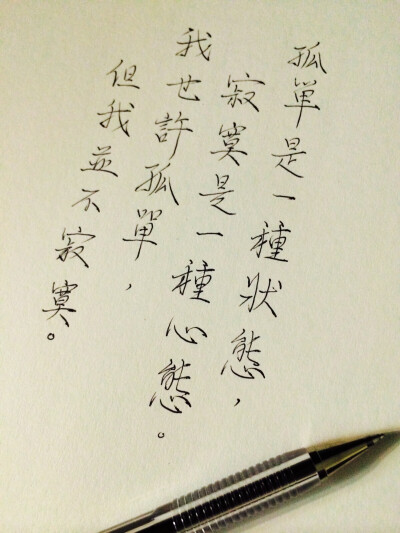 孤單是一種狀態，
寂寞是一種心態。
我也許孤單，
但我並不寂寞。